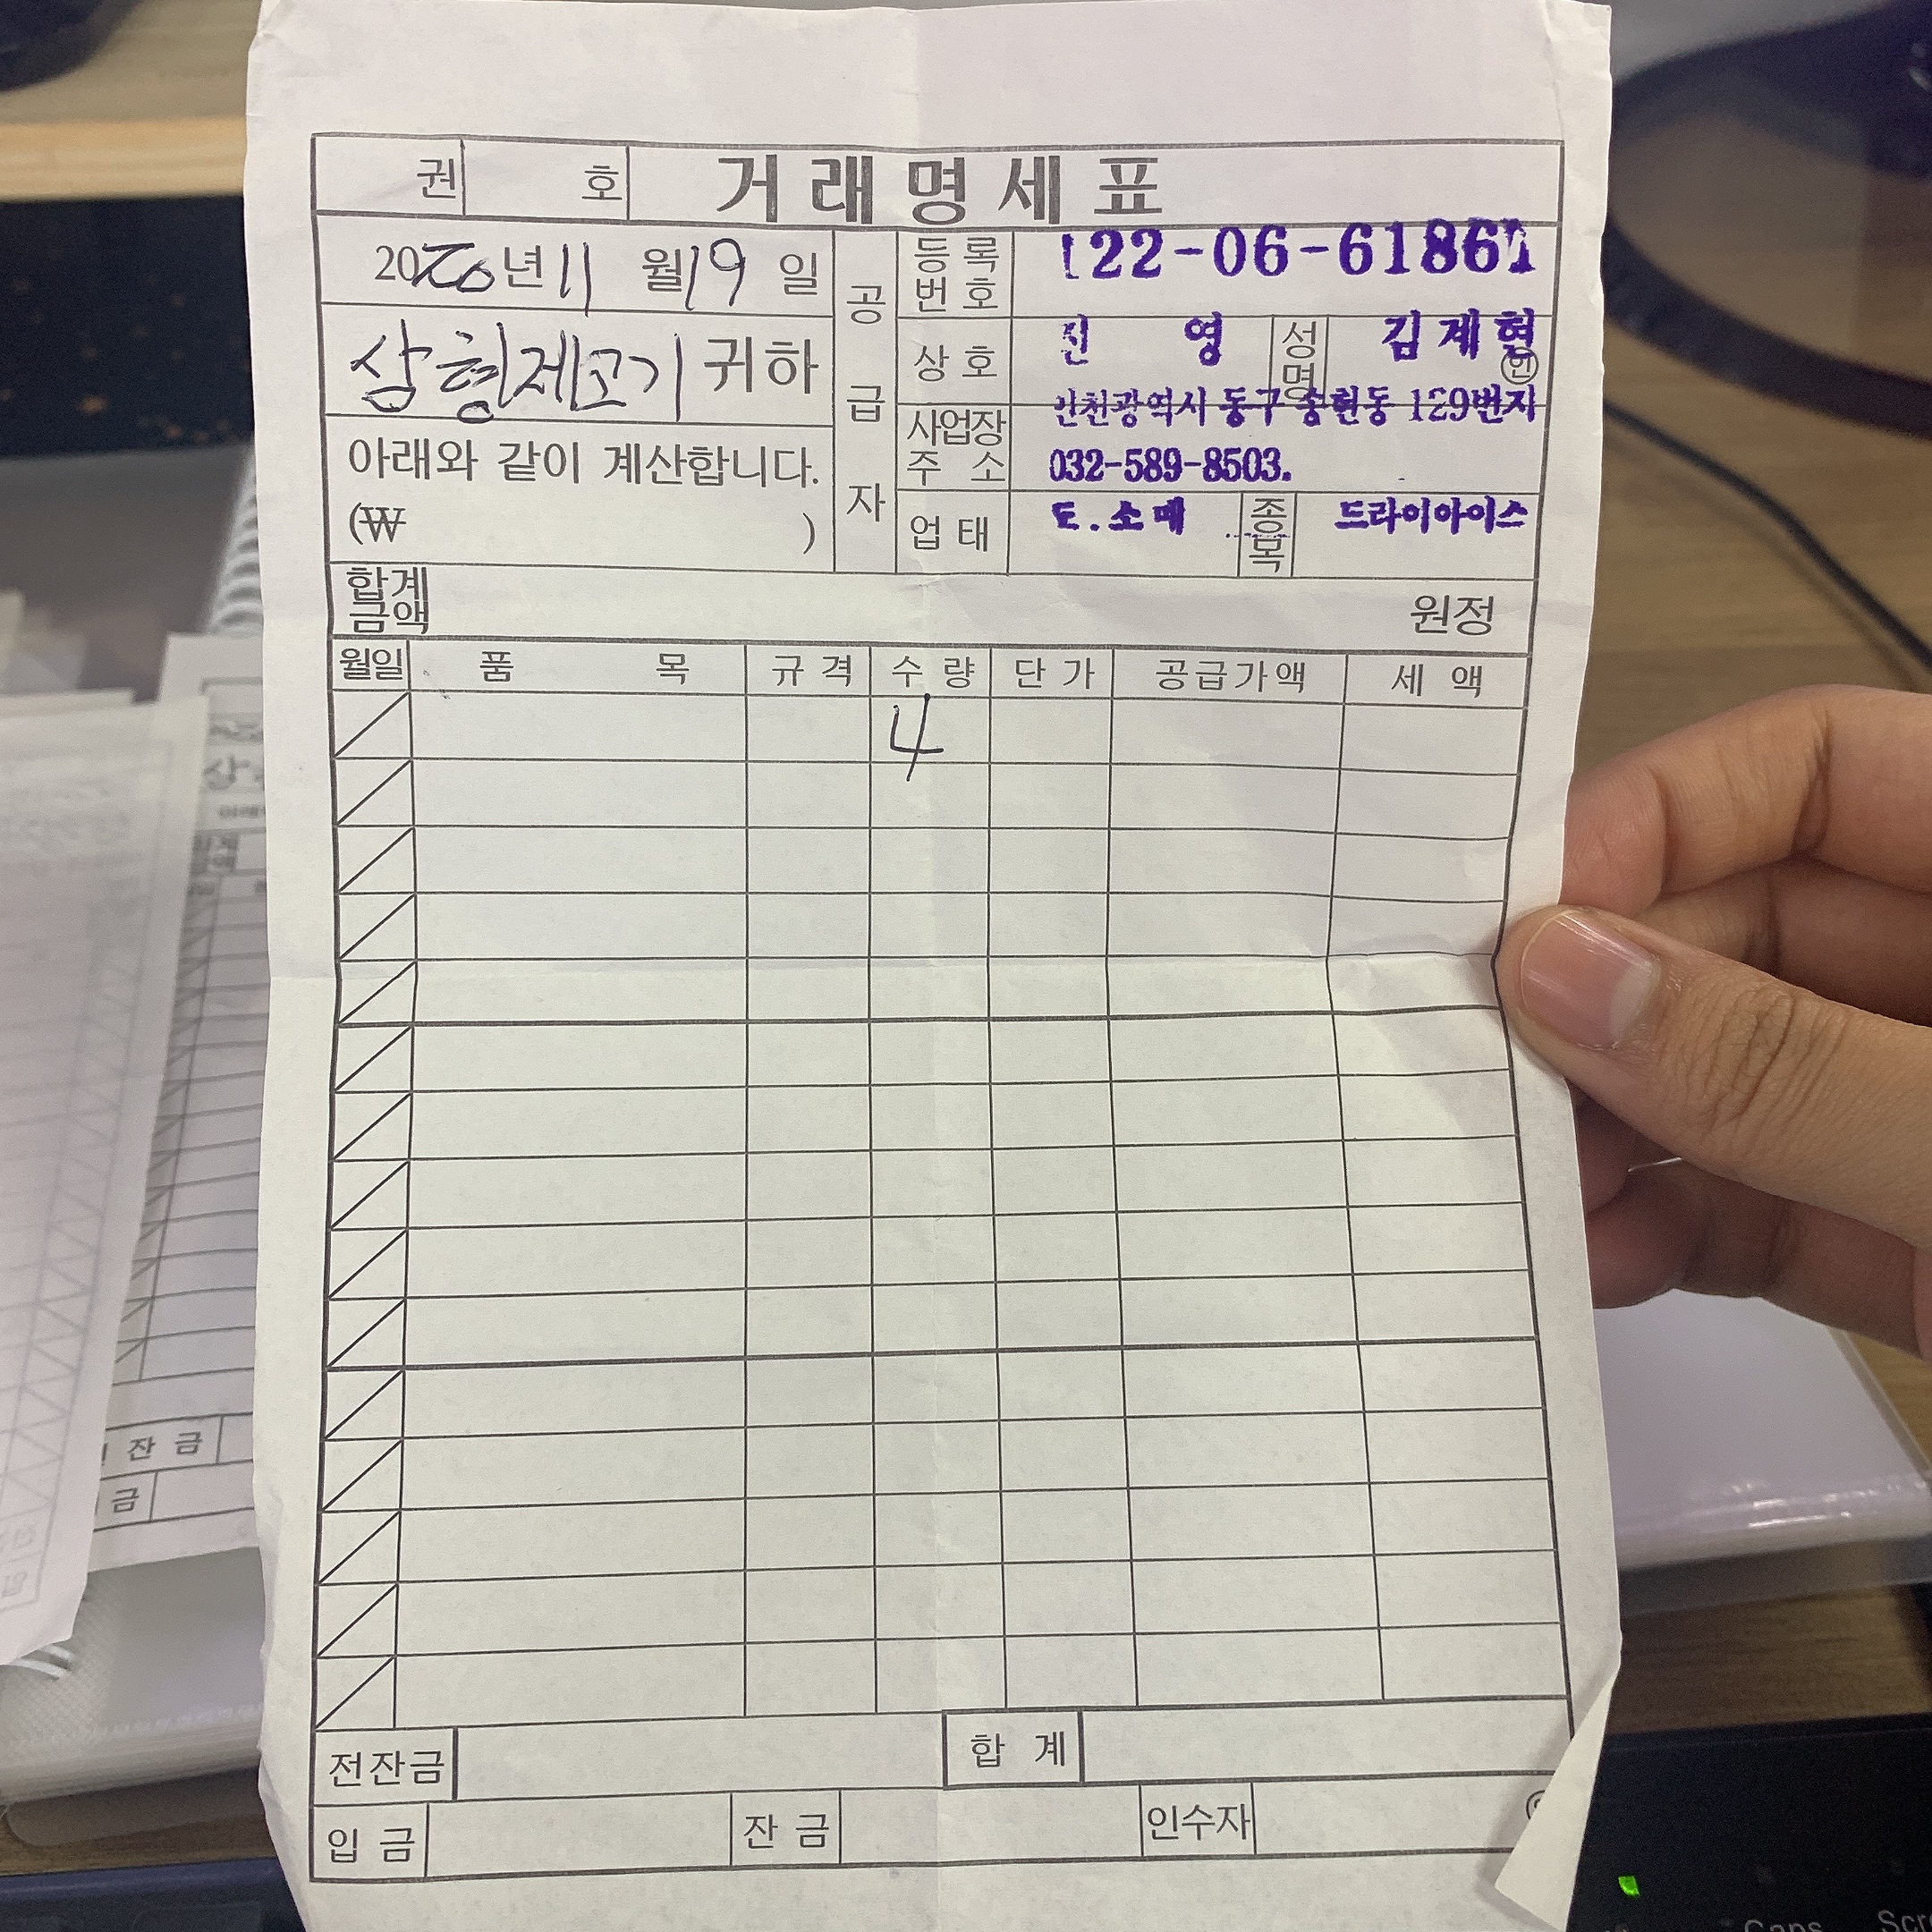 권 호 거래명세표
2020년 11월 19일
삼형제고기 귀하
아래와 같이 계산합니다.
(₩ )
공급자
등록번호 122-06-61861
상호 진영 성명 김계현 인
사업장주소 인천광역시 동구 송현동 129번지
032-589-8503.
업태 도.소매 종목 드라이아이스
합계금액 원정
월일 품목 규격 수량 단가 공급가액 세액
4
전잔금 합계
입금 잔금 인수자
잔금
금
Caps